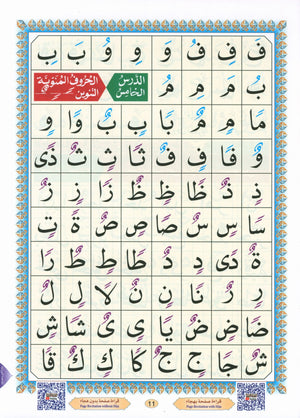 فَ فِ فُ وَ وِ وُ بَ بِ
بُ مَ مِ مُ الدَّرْسُ الْخَامِسُ الْحُرُوفُ الْمُنَوَّنَةُ التَّنْوِينُ
مًا مٍ مٌ بًا بٍ بٌ وًا وٍ
وٌ فًا فٍ فٌ ثًا ثٍ ثٌ ذًى
ذٍ ذٌ ظًا ظٍ ظٌ زًا زٍ زٌ
سًا سٍ سٌ صًا صٍ صٌ ةً تٍ
ةٌ دًى دٍ دٌ طًا طٍ طٌ رًا
رٍ رٌ نًا نٍ نٌ لًا لٍ لٌ
ضًا ضٍ ضٌ يًا يٍ يٌ شًا شٍ
شٌ جًا جٍ جٌ كًا كٍ كٌ قًا
قراءة صفحة بدون هجاء
Page Recitation without Hija
11
قراءة صفحة بهجاء
Page Recitation with Hija